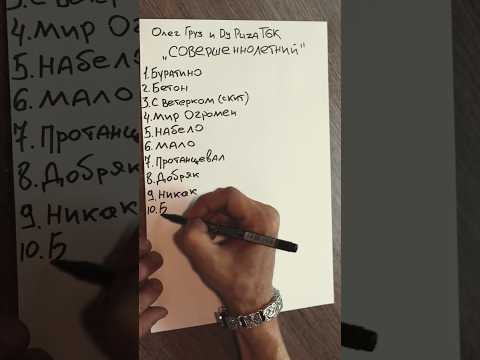 Олег Груз и Dj Puza ТGK
"Совершеннолетний"
1. Буратино
2. Бетон
3. С ветерком (скит)
4. Мир Огромен
5. Набело
6. Мало
7. Протанцевал
8. Добряк
9. Никак
10. Б